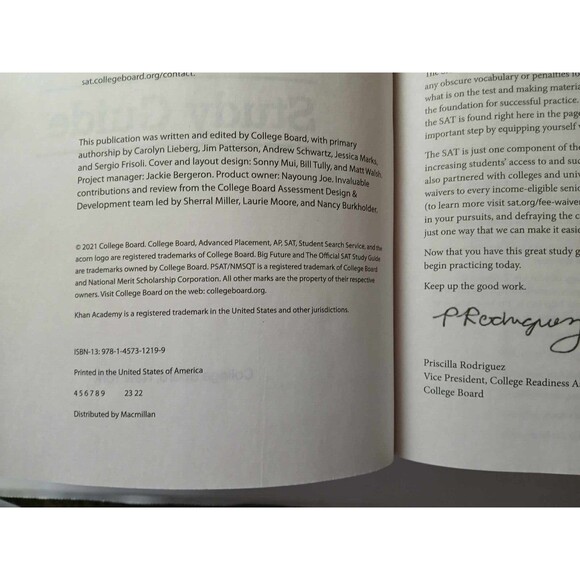 sat.collegeboard.org/contact.
This publication was written and edited by College Board, with primary
authorship by Carolyn Lieberg, Jim Patterson, Andrew Schwartz, Jessica Marks,
and Sergio Frisoli. Cover and layout design: Sonny Mui, Bill Tully, and Matt Walsh.
Project manager: Jackie Bergeron. Product owner: Nayoung Joe. Invaluable
contributions and review from the College Board Assessment Design &
Development team led by Sherral Miller, Laurie Moore, and Nancy Burkholder.
© 2021 College Board. College Board, Advanced Placement, AP, SAT, Student Search Service, and the
acorn logo are registered trademarks of College Board. Big Future and The Official SAT Study Guide
are trademarks owned by College Board. PSAT/NMSQT is a registered trademark of College Board
and National Merit Scholarship Corporation. All other marks are the property of their respective
owners. Visit College Board on the web: collegeboard.org.
Khan Academy is a registered trademark in the United States and other jurisdictions.
ISBN-13: 978-1-4573-1219-9
Printed in the United States of America
4 5 6 7 8 9 23 22
Distributed by Macmillan
any obscure vocabulary or penalties fo
what is on the test and making material
the foundation for successful practice.
the SAT is found right here in the page
important step by equipping yourself
The SAT is just one component of the
increasing students' access to and suc
also partnered with colleges and univ
waivers to every income-eligible senio
(to learn more visit sat.org/fee-waiver
in your pursuits, and defraying the c
just one way that we can make it easie
Now that you have this great study g
begin practicing today.
Keep up the good work.
PRodriguez
Priscilla Rodriguez
Vice President, College Readiness A
College Board